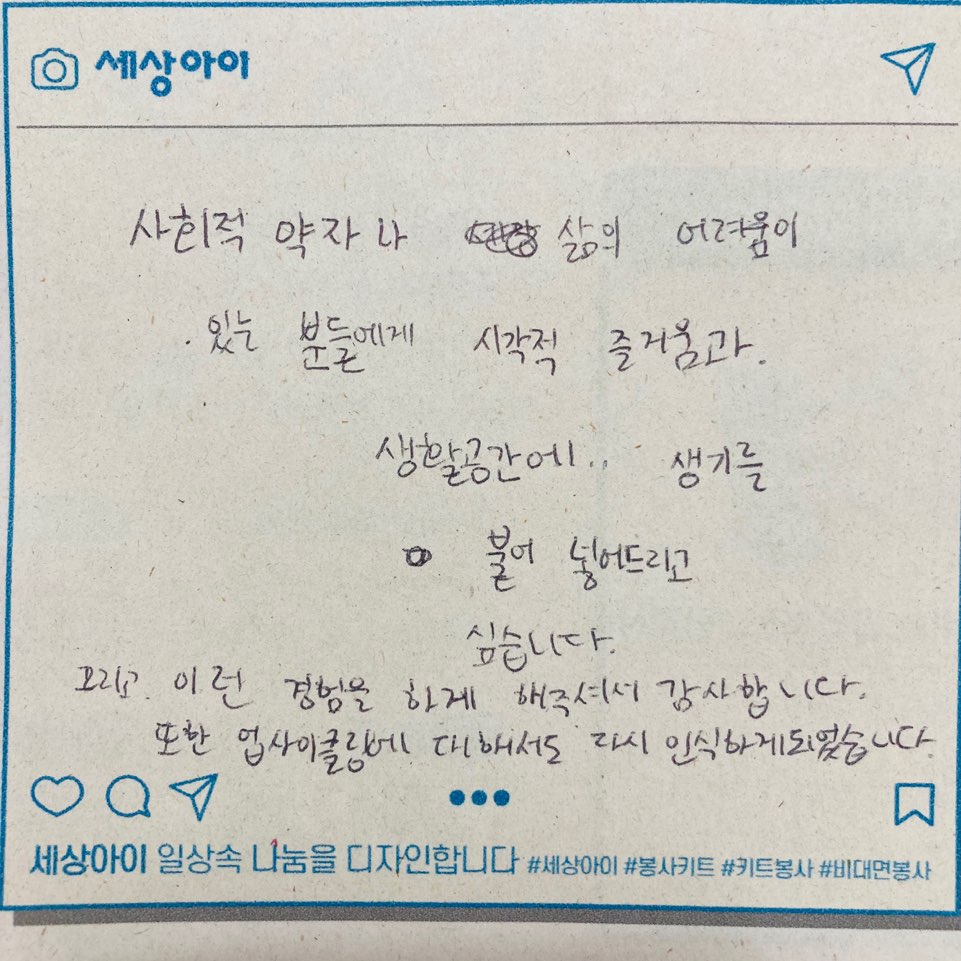 세상아이
사회적 약자나 삶의 어려움이
있는 분들에게 시각적 즐거움과.
생활공간에.. 생기를
불어 넣어드리고
싶습니다.
그리고 이런 경험을 하게 해주셔서 감사합니다.
또한 업사이클링에 대해서도 다시 인식하게되었습니다.
세상아이 일상속 나눔을 디자인합니다 #세상아이 #봉사키트 #키트봉사 #비대면봉사